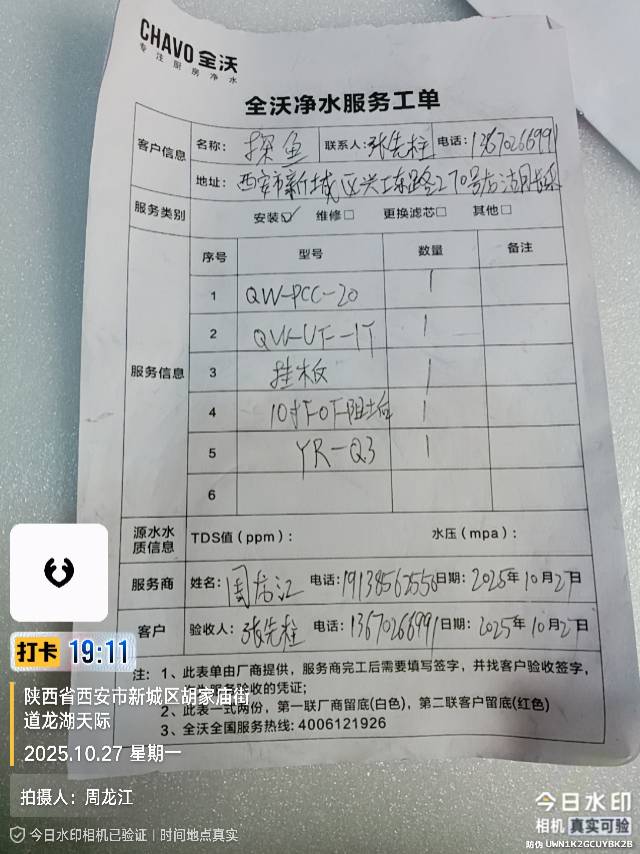 CHAVO 全沃
专注厨房净水
全沃净水服务工单
客户信息 名称: 探鱼 联系人: 张先柱 电话: 13670266991
地址: 西安市新城区兴工东路270号龙湖
服务类别 安装☑ 维修□ 更换滤芯□ 其他□
服务信息
序号 型号 数量 备注
1 QW-PCC-20 1
2 QW-UF-1T 1
3 挂板 1
4 10寸FOF阻垢 1
5 YR-Q3 1
6
源水水质信息 TDS值(ppm): 水压(mpa):
服务商 姓名: 周龙江 电话: 19138562556 日期: 2025年10月27日
客户 验收人: 张先柱 电话: 13670266991 日期: 2025年10月27日
注: 1、此表单由厂商提供,服务商完工后需要填写签字,并找客户验收签字,
验收的凭证;
2、此表一式两份,第一联厂商留底(白色),第二联客户留底(红色)
3、全沃全国服务热线: 4006121926
打卡 19:11
陕西省西安市新城区胡家庙街
道龙湖天际
2025.10.27 星期一
拍摄人: 周龙江
今日水印相机已验证 | 时间地点真实
今日水印
相机 真实可验
防伪 UWN1K2GCUYBK2B